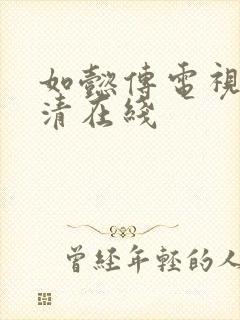 如懿傳電視
清在綫
曾經年輕的人